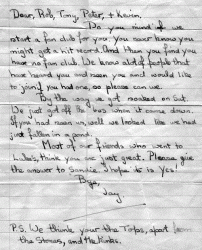 Dear, Rob, Tony, Peter, + Kevin,
Do you mind if we
start a fan club for you. You never know you
might get a hit record. And then you find you
have no fan club. We know alot of people that
have heard you and seen you and would like
to join if you had one, so please can we.
By the way we got soaked on Sat.
We just got off the bus when it came down.
If you had seen us, well we looked like we had
just fallen in a pond.
Most of our friends who went to
think you are just great. Please give
the answer to Sandie. Hope its is Yes!
Bye,
Jay.
P.S. We think, your the Tops, apart from
the Stones, and the Kinks.